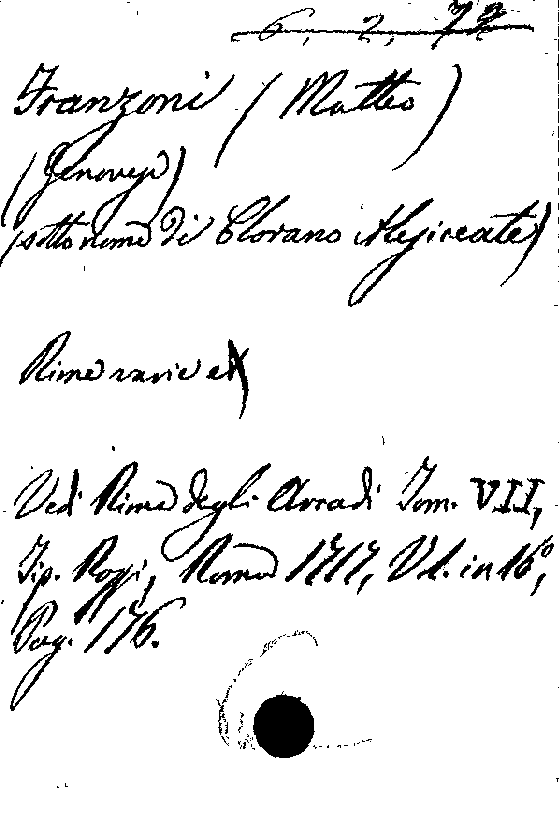 6. 2. 72
Franzoni (Matteo)
(Genovese)
(sotto nome di Clorano Alessiceate)
Rime varie
Vedi Rime degli Arcadi Tom. VII,
Tip. Rossi, Roma 1717, Vol. in 16°,
Pag. 176.